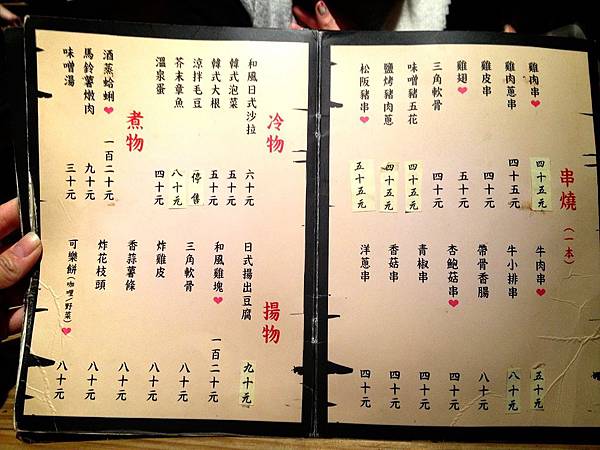 串燒（一本）
雞肉串❤ 四十五元
雞肉蔥串 四十五元
雞皮串 四十元
雞翅❤ 五十元
三角軟骨 四十元
味噌豬五花 四十五元
鹽烤豬肉蔥 四十五元
松阪豬串❤ 五十五元
牛肉串❤ 五十元
牛小排串 八十元
帶骨香腸 八十元
杏鮑菇串❤ 四十元
青椒串 四十元
香菇串 四十元
洋蔥串 四十元
冷物
和風日式沙拉 六十元
韓式泡菜 五十元
韓式大根 五十元
涼拌毛豆 停售
芥末章魚 八十元
溫泉蛋 四十元
煮物
酒蒸蛤蜊❤ 一百二十元
馬鈴薯燉肉 九十元
味噌湯 三十元
揚物
日式揚出豆腐 九十元
和風雞塊❤ 一百二十元
三角軟骨 八十元
炸雞皮 八十元
香蒜薯條 八十元
炸花枝頭 八十元
可樂餅（咖哩/野菜）❤ 八十元